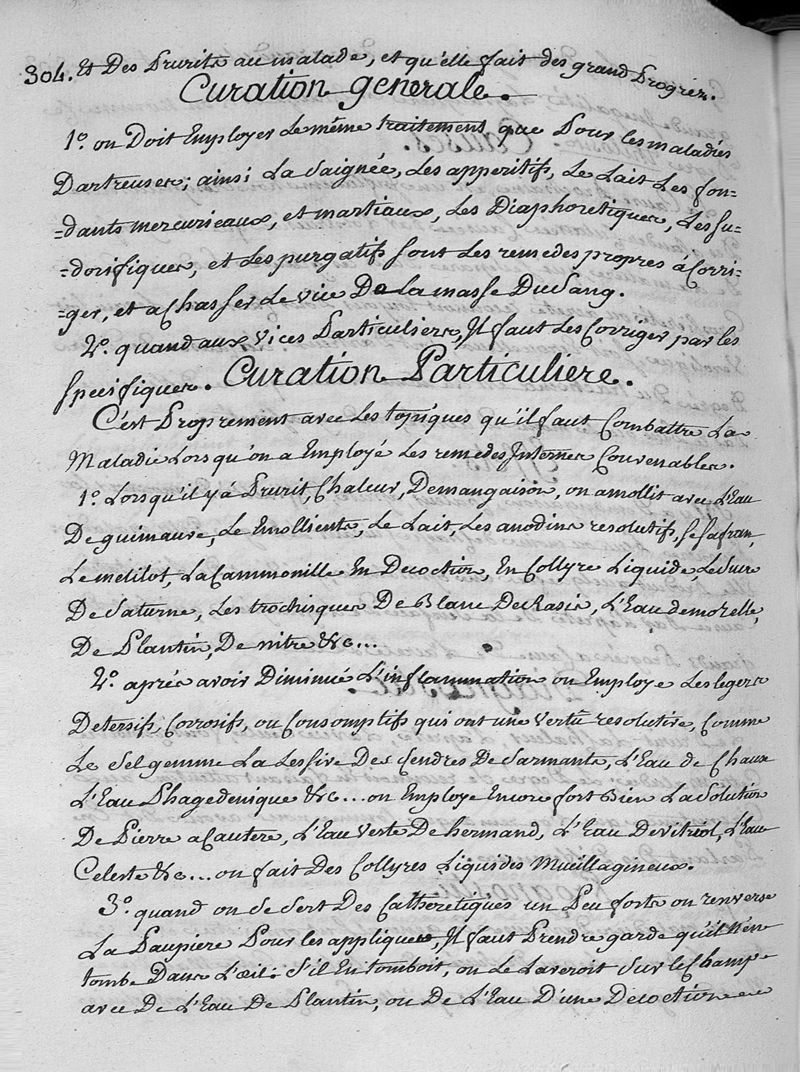 304. Et Des Prurits au malade, et qu'elle fait des grand Progrès.
Curation generale.
1.º on Doit Employer Le même traitement que Pour les maladies
Dartreuses; ainsi La Saignée, Les apperitifs, Le Lait Les fon=
=dants mercuriaux, et martiaux, Les Diaphoretiques, Les su=
=dorifiques, et Les purgatifs sont Les remedes propres à Corri=
=ger, et a Chasser Le vice De la masse Du Sang.
2.º quand aux vices Particuliers, Il faut Les Corriger par les
specifiques. Curation Particuliere.
C'est Proprement avec Les topiques qu'il faut Combattre La
Maladie Lorsqu'on a Employé Les remedes Internes Convenables.
1.º Lorsqu'il y á Prurit, Chaleur, Demangaison, on amollit avec L'Eau
De guimauve, Le Emollients, Le Lait, Les anodins resolutifs, Le Safran,
Le melilot, La Cammomille En Decoction, En Collyre Liquide, Le Sucre
De Saturne, Les trochisques De Blanc De Rasis, L'Eau de morelle,
De Plantin, De nitre &c...
2.º aprés avoir Diminué L'inflammation on Employe Les legers
Detersifs, Corrosifs, ou Consomptifs qui ont une vertu resolutive, Comme
Le Sel gemme La Lessive Des Cendres De Sarments, L'Eau de Chaux
L'Eau Phagedenique &c... on Employe Encore fort Bien La Solution
De Pierre a Cautere, L'Eau verte De hermand, L'Eau De vitriol, L'Eau
Celeste &c... on fait Des Collyres Liquides Mucillagineux.
3.º quand on Se Sert Des Catheretiques un Peu forts on renverse
La Paupiere Pour les appliquer, Il faut Prendre garde qu'il N'en
tombe Dans L'œil: S'il En tomboit, on Le Laveroit Sur le Champ
avec De L'Eau De Plantin, ou De L'Eau D'une Decoction